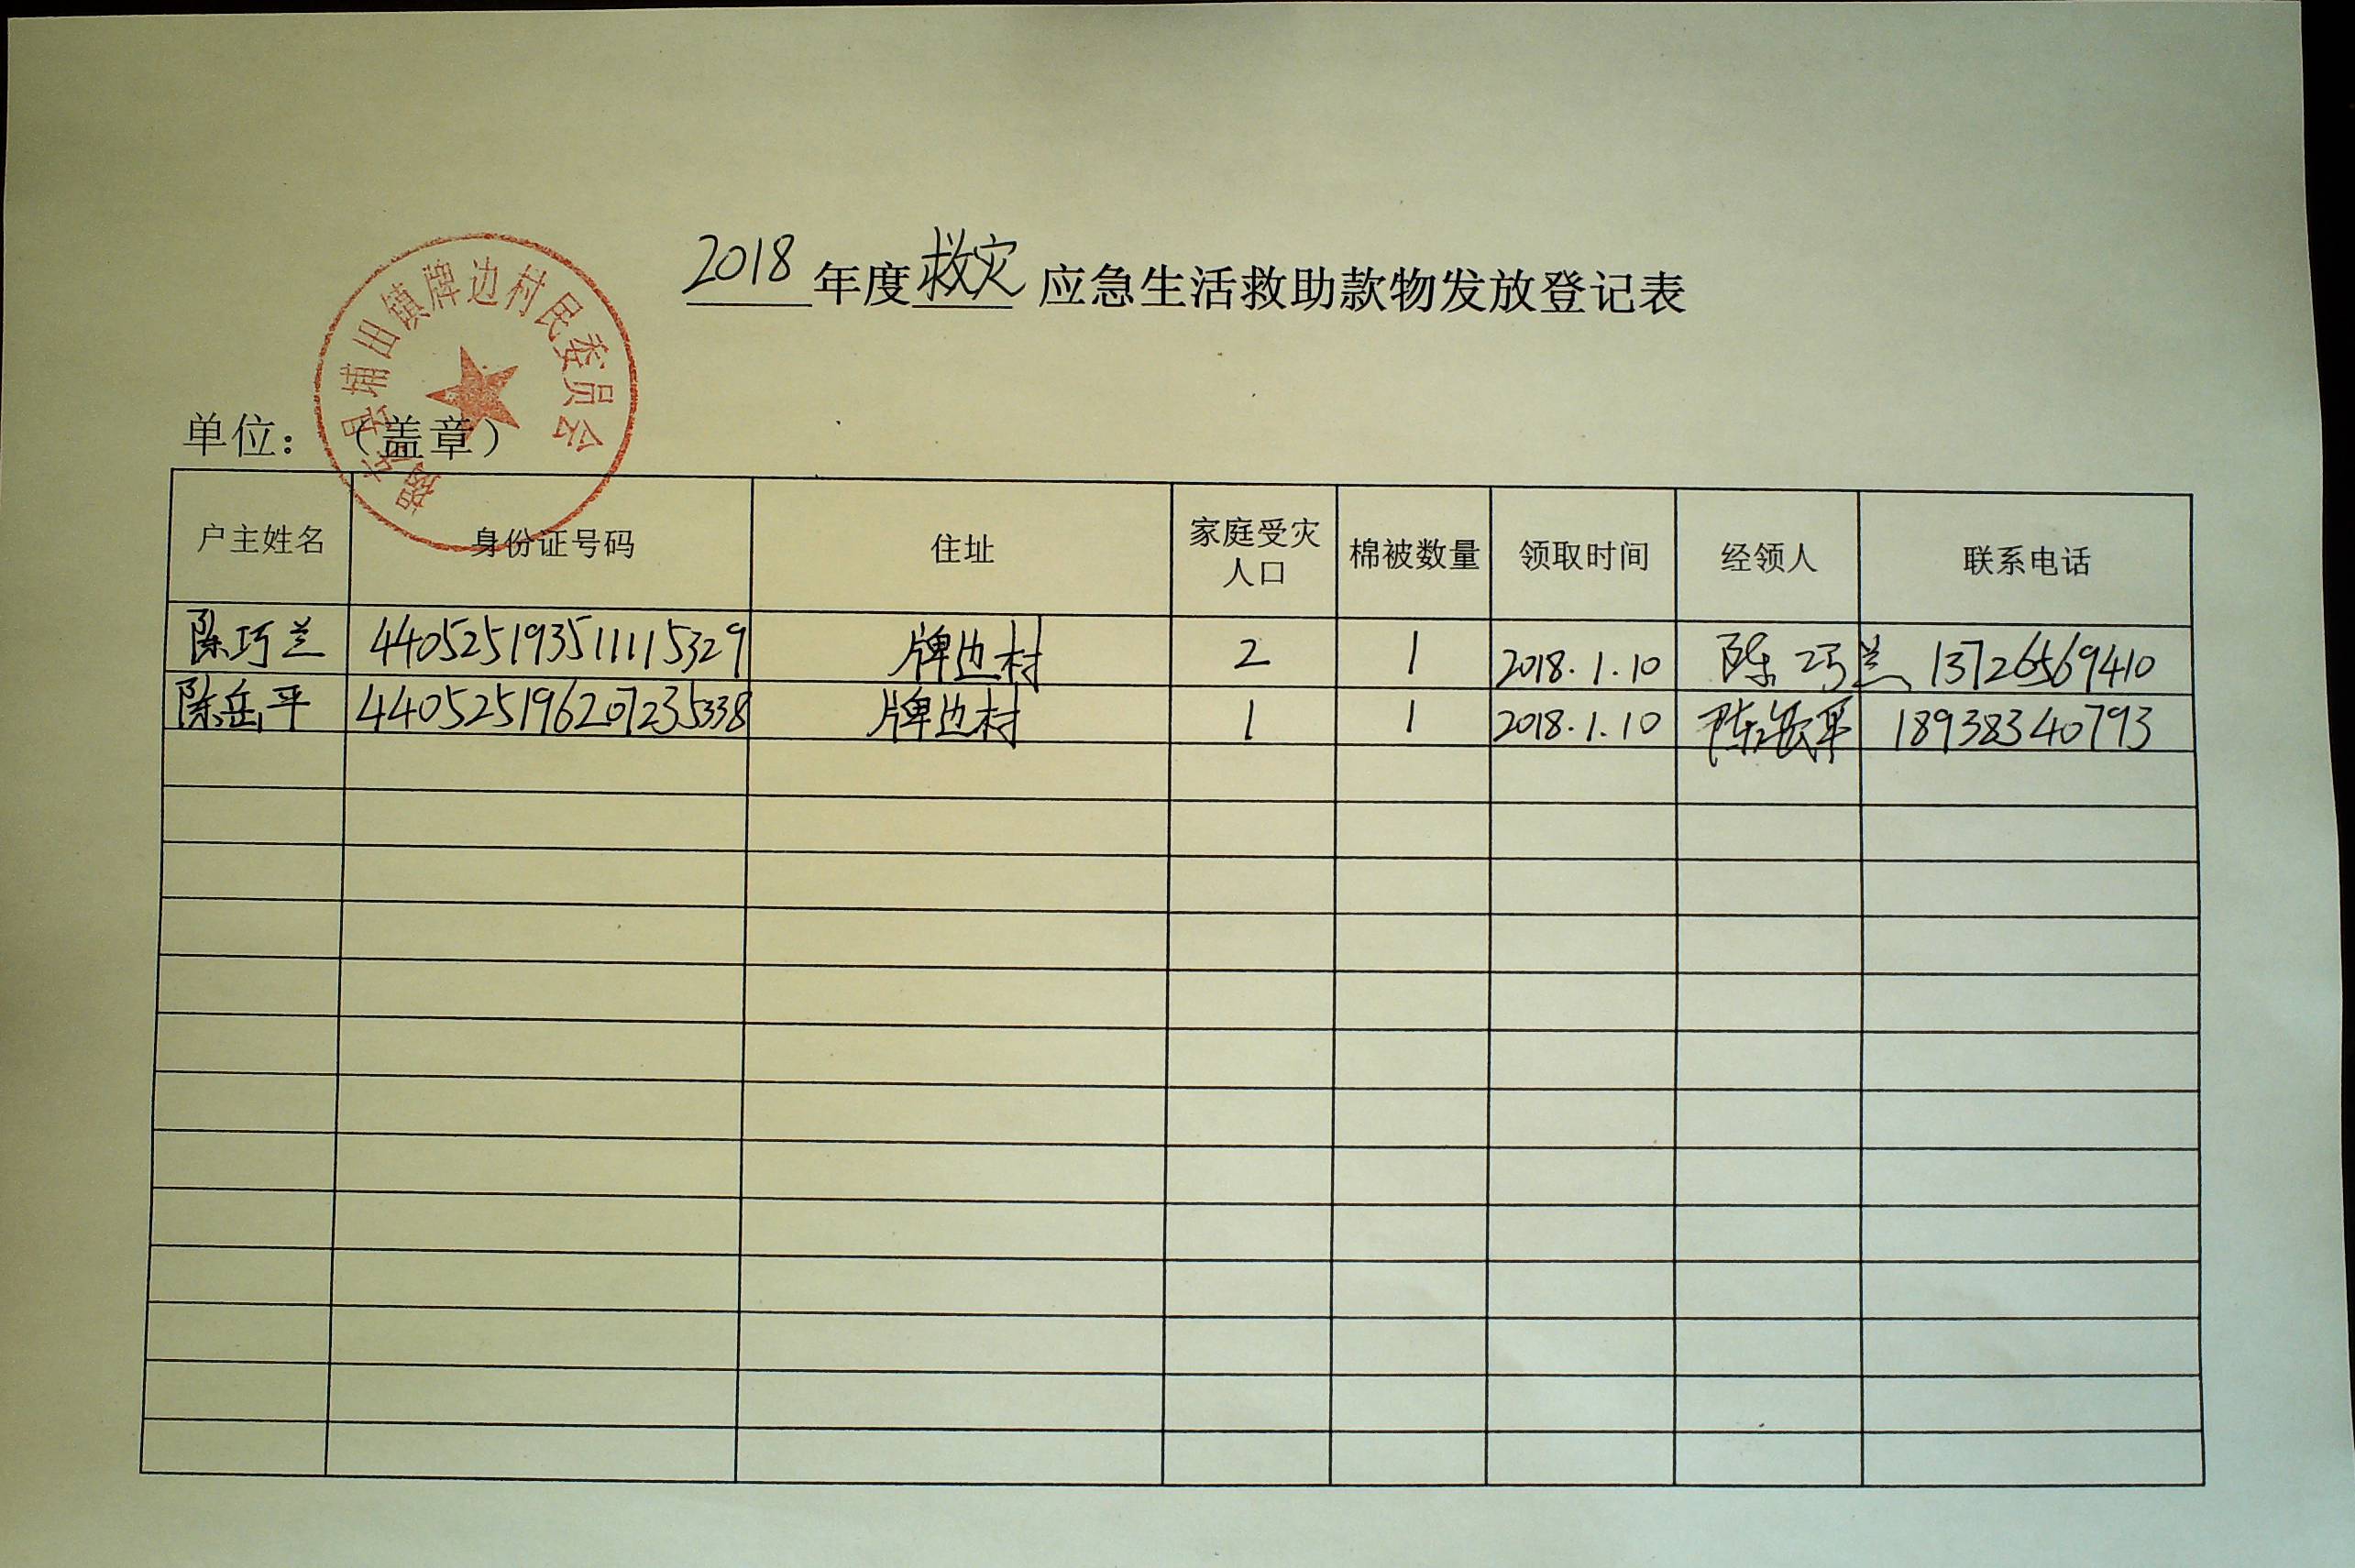 2018年度救灾应急生活救助款物发放登记表
揭东县埔田镇牌边村民委员会
单位：（盖章）
户主姓名 身份证号码 住址 家庭受灾人口 棉被数量 领取时间 经领人 联系电话
陈巧兰 440525193511115329 牌边村 2 1 2018.1.10 陈巧兰 13726569410
陈岳平 440525196207235338 牌边村 1 1 2018.1.10 陈岳平 18938340793